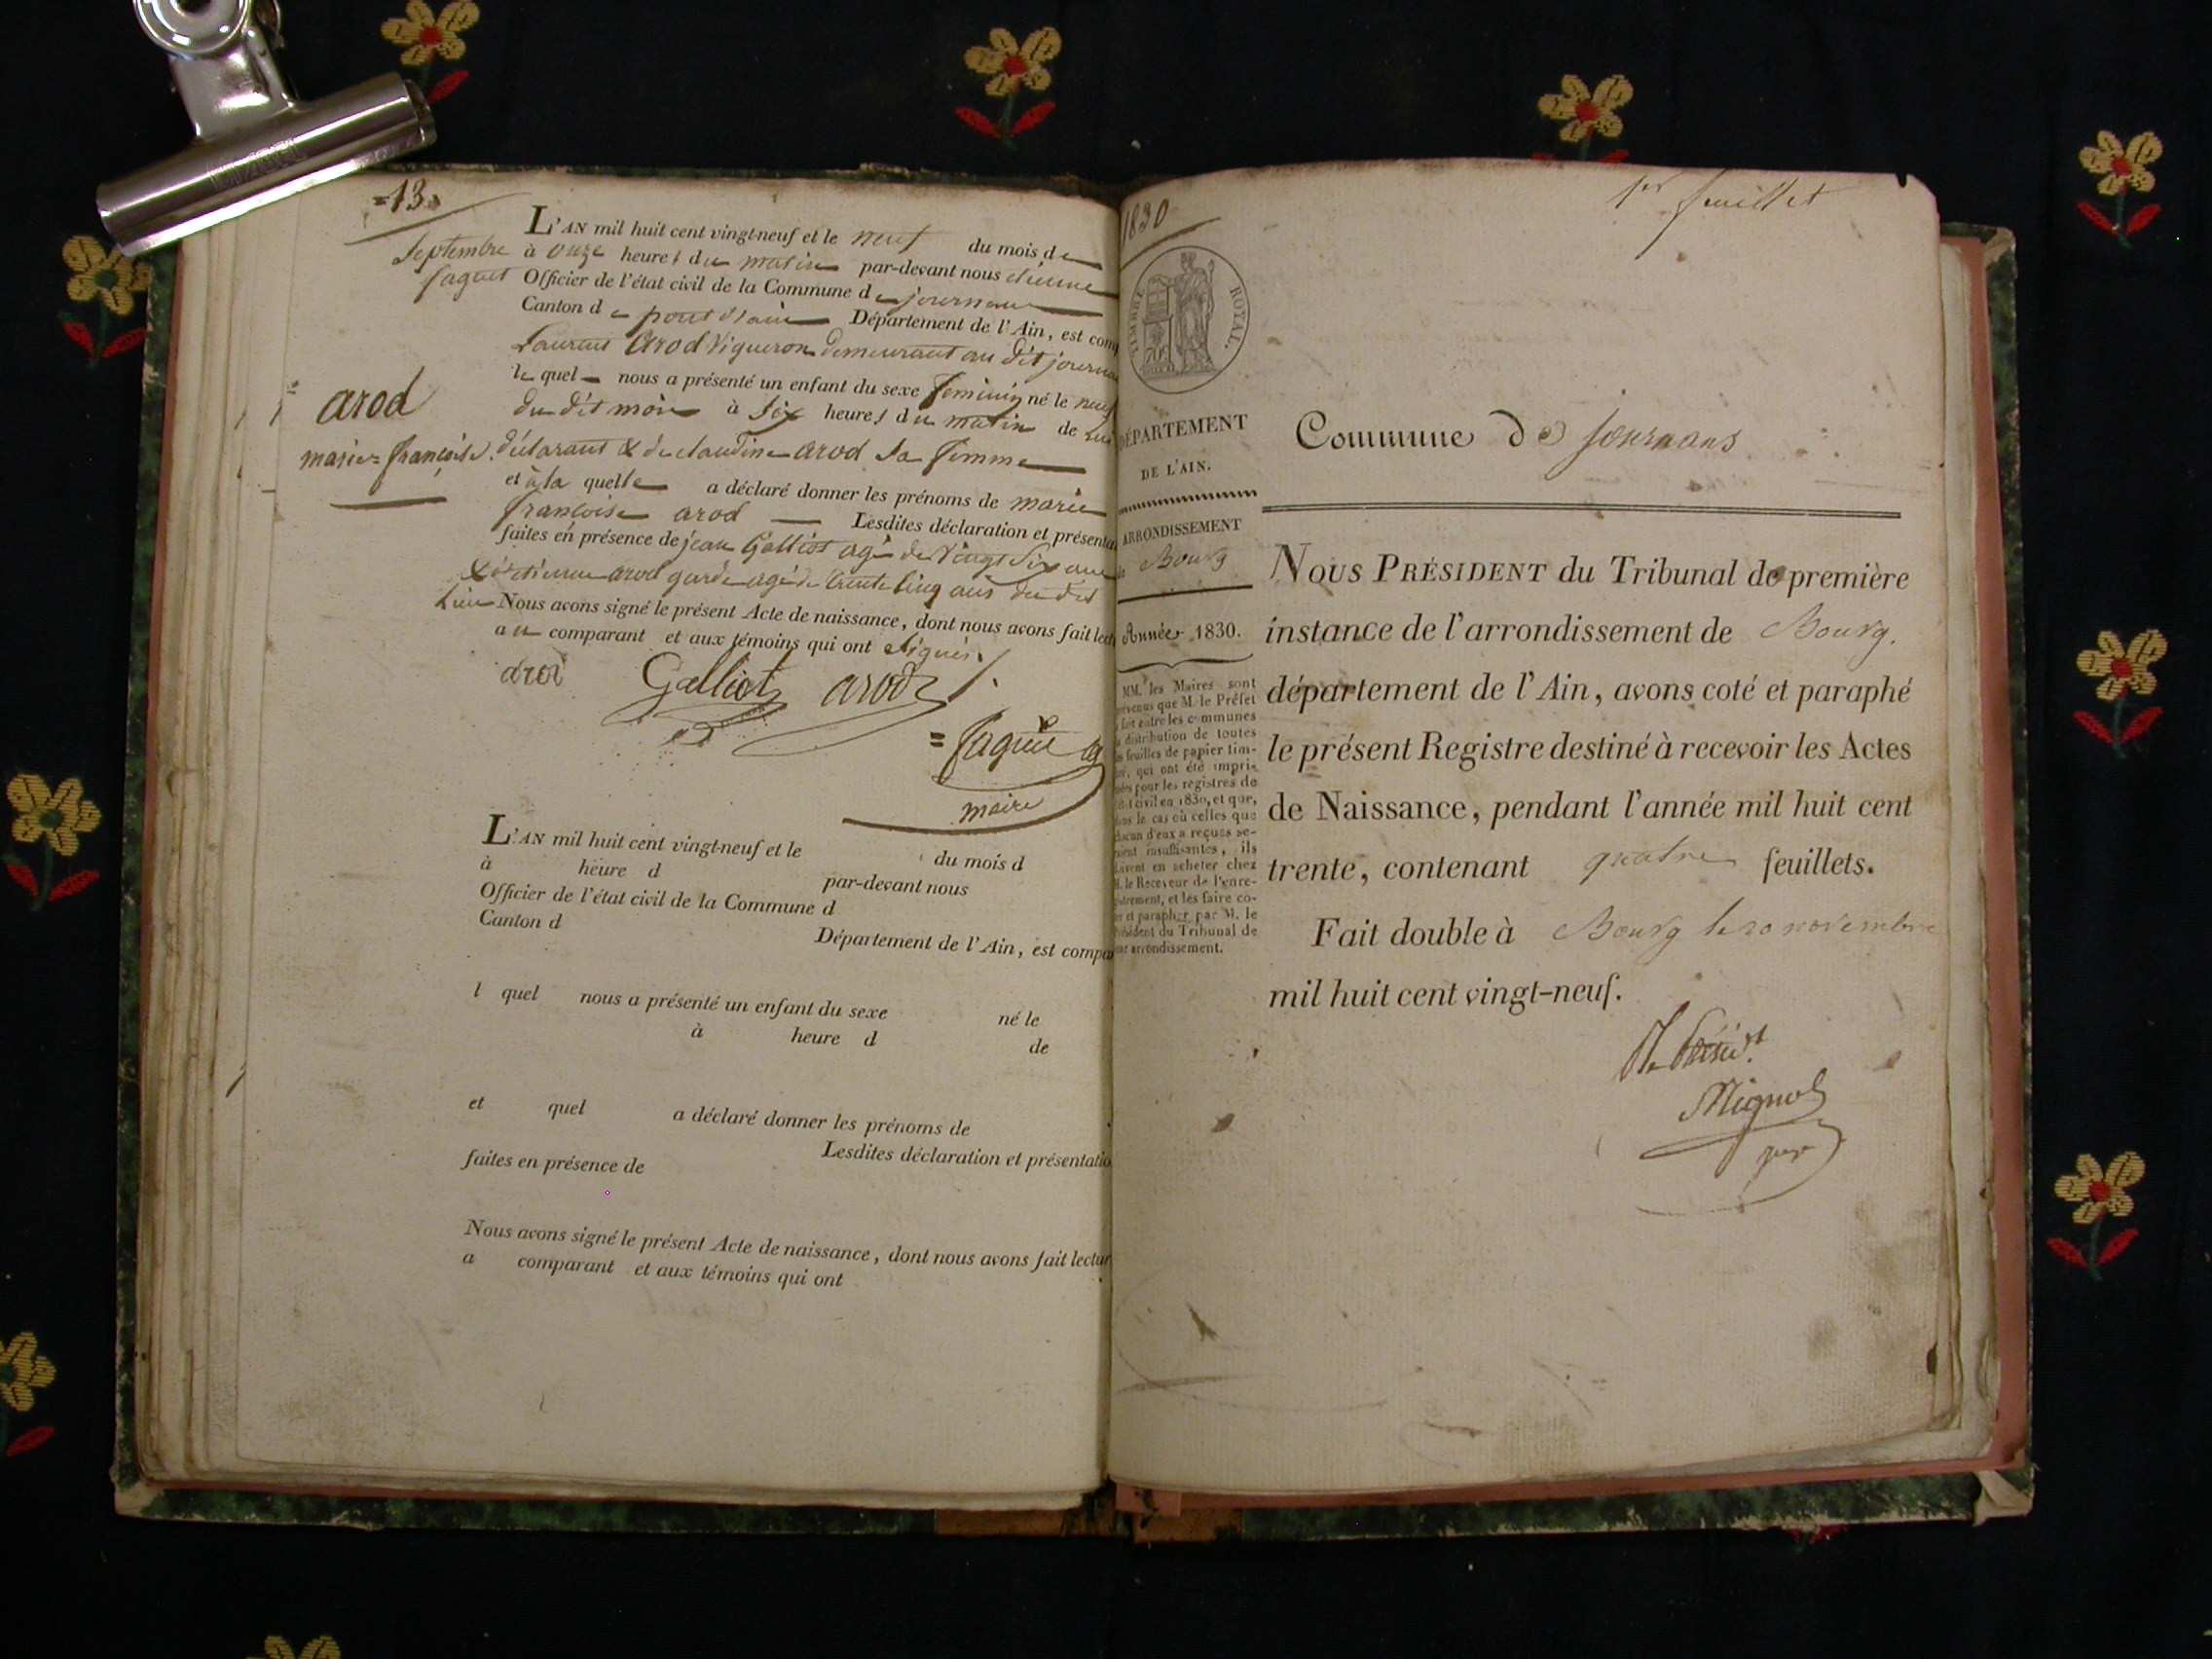 =13=
L'AN mil huit cent vingt-neuf et le neuf du mois de
Septembre à onze heures du matin par-devant nous etienne
faguet Officier de l'état civil de la Commune de journans
Canton de pont d'ain Département de l'Ain, est comp
Laurent arod Vigneron demeurant au dit journa
le quel nous a présenté un enfant du sexe feminin né le neuf
du dit mois à six heures du matin de lui
arod
marie=françoise.
déclarant & de claudine arod sa femme
et à la quelle a déclaré donner les prénoms de marie
françoise arod Lesdites déclaration et présentat
faites en présence de jean Galliot agé de Vingt Six ans
& d'etienne arod garde agé de trente cinq ans du dit
Lieu Nous avons signé le présent Acte de naissance, dont nous avons fait lect
au comparant et aux témoins qui ont signés.
arod Galliot arod
=faguet
maire
L'AN mil huit cent vingt-neuf et le du mois d
à heure d par-devant nous
Officier de l'état civil de la Commune d
Canton d Département de l'Ain, est compar
l quel nous a présenté un enfant du sexe né le
à heure d de
et quel a déclaré donner les prénoms de
Lesdites déclaration et présentatio
faites en présence de
Nous avons signé le présent Acte de naissance, dont nous avons fait lectur
a comparant et aux témoins qui ont
1830
1er feuillet
TIMBRE ROYAL.
DÉPARTEMENT
DE L'AIN.
ARRONDISSEMENT
Bourg
Année 1830.
MM. les Maires sont
prévenus que M. le Préfet
fait entre les communes
distribution de toutes
feuilles de papier tim-
qui ont été impri-
pour les registres de
civil en 1830, et que,
le cas où celles que
chacun d'eux a reçues se-
insuffisantes, ils
doivent en acheter chez
M. le Receveur de l'enre-
gistrement, et les faire co-
ter et parapher par M. le
Président du Tribunal de
arrondissement.
Commune de journans
NOUS PRÉSIDENT du Tribunal de première
instance de l'arrondissement de Bourg.
département de l'Ain, avons coté et paraphé
le présent Registre destiné à recevoir les Actes
de Naissance, pendant l'année mil huit cent
trente, contenant quatre feuillets.
Fait double à Bourg le 20 novembre
mil huit cent vingt-neuf.